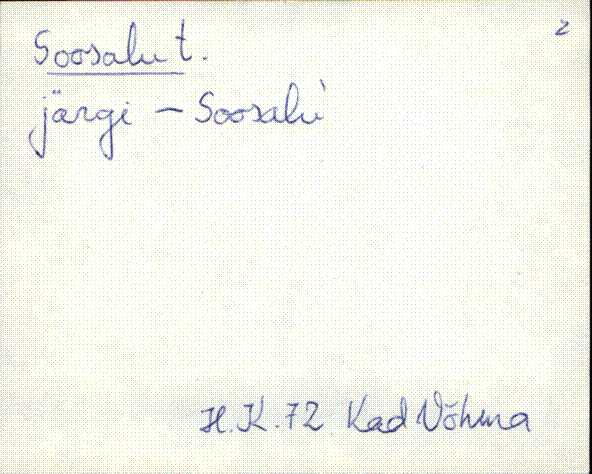 2
Soosalu t.
järgi – Soosalu`
H.K. 72 Kad Võhma